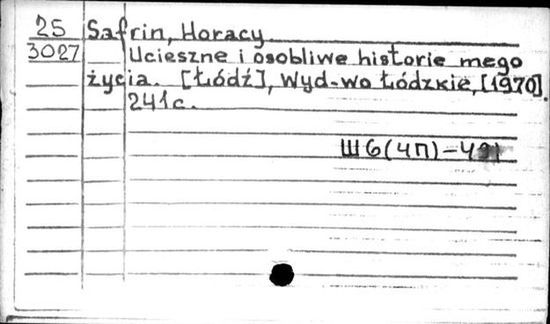 25 Safrin, Horacy.
3027 Ucieszne i osobliwe historie mego
życia. [Łódź], Wyd-wo Łódzkie, [1970].
241 с.
Ш6(4П)-4